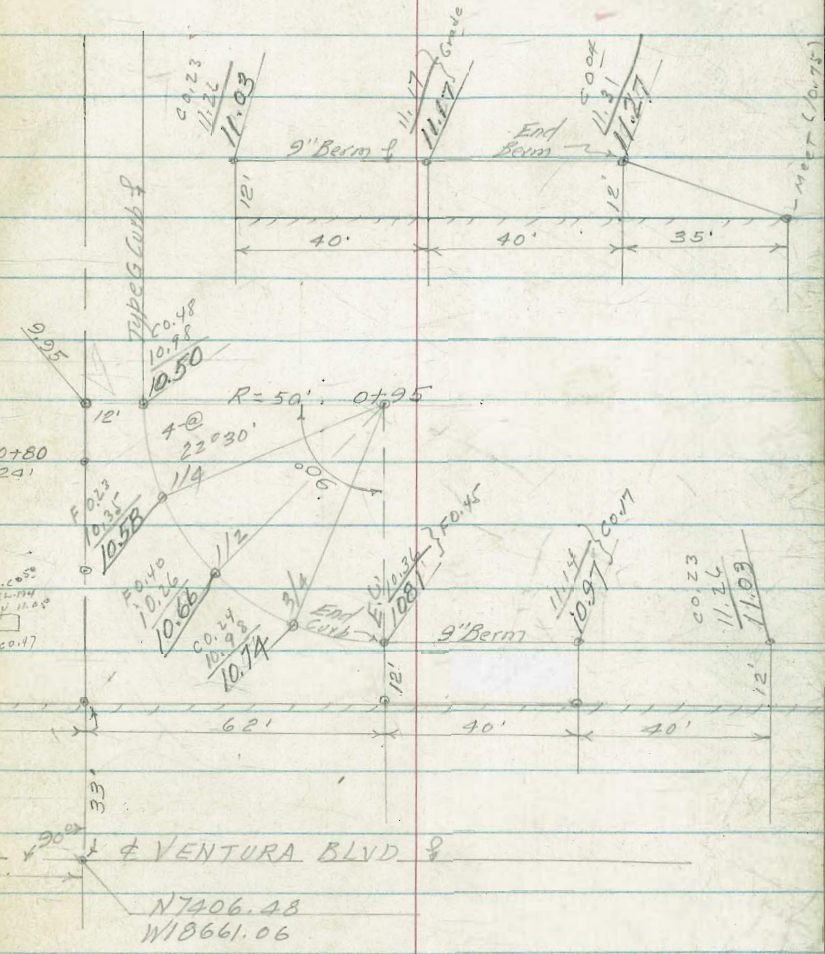 C0.23
11.26
11.03
11.17
11.17 } Grade
C0.04
11.31
11.27
Meet (10.75)
9" Berm
End
Berm
12'
12'
40'
40'
35'
Type G Curb
C0.48
10.98
10.50
9.95
12'
R=50'
0+95
4-@
22°30'
90°
0+80
24'
1/4
F0.23
10.35
10.58
1/2
F0.40
10.26
10.66
3/4
C0.24
10.98
10.74
End
Curb
E.C.
10.36
10.81
} F0.45
9" Berm
11.14
10.97
} C0.17
C0.23
11.26
11.03
C0.47
12'
12'
62'
40'
40'
33'
90°
℄ VENTURA BLVD
N7406.48
W18661.06